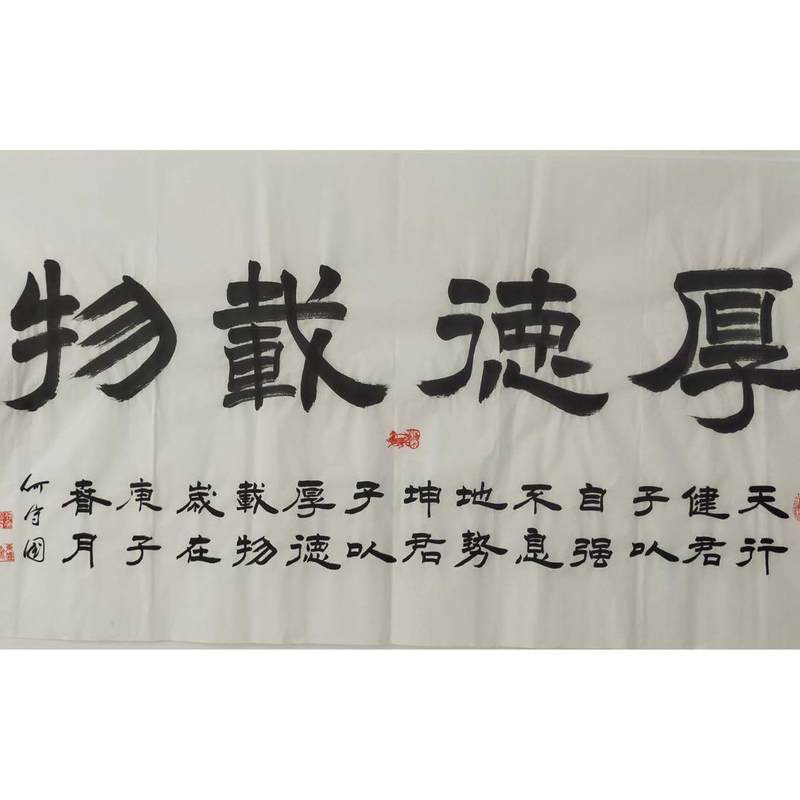 厚徳載物
天行
健君
子以
自强
不息
地勢
坤君
子以
厚徳
載物
歲在
庚子
春月
何 國